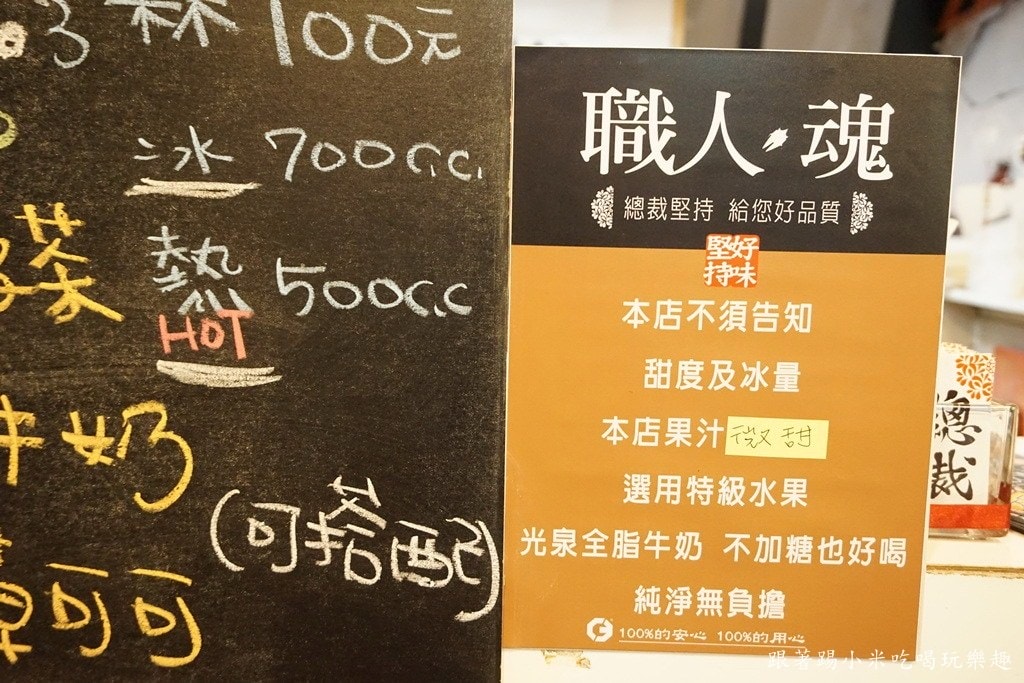 100元
冰 700c.c.
熱 500c.c
HOT
茶
牛奶
可可
(可搭配)
職人魂
總裁堅持 給您好品質
堅好
持味
本店不須告知
甜度及冰量
本店果汁微甜
選用特級水果
光泉全脂牛奶 不加糖也好喝
純淨無負擔
100%的安心 100%的用心
總裁
跟著踢小米吃喝玩樂趣